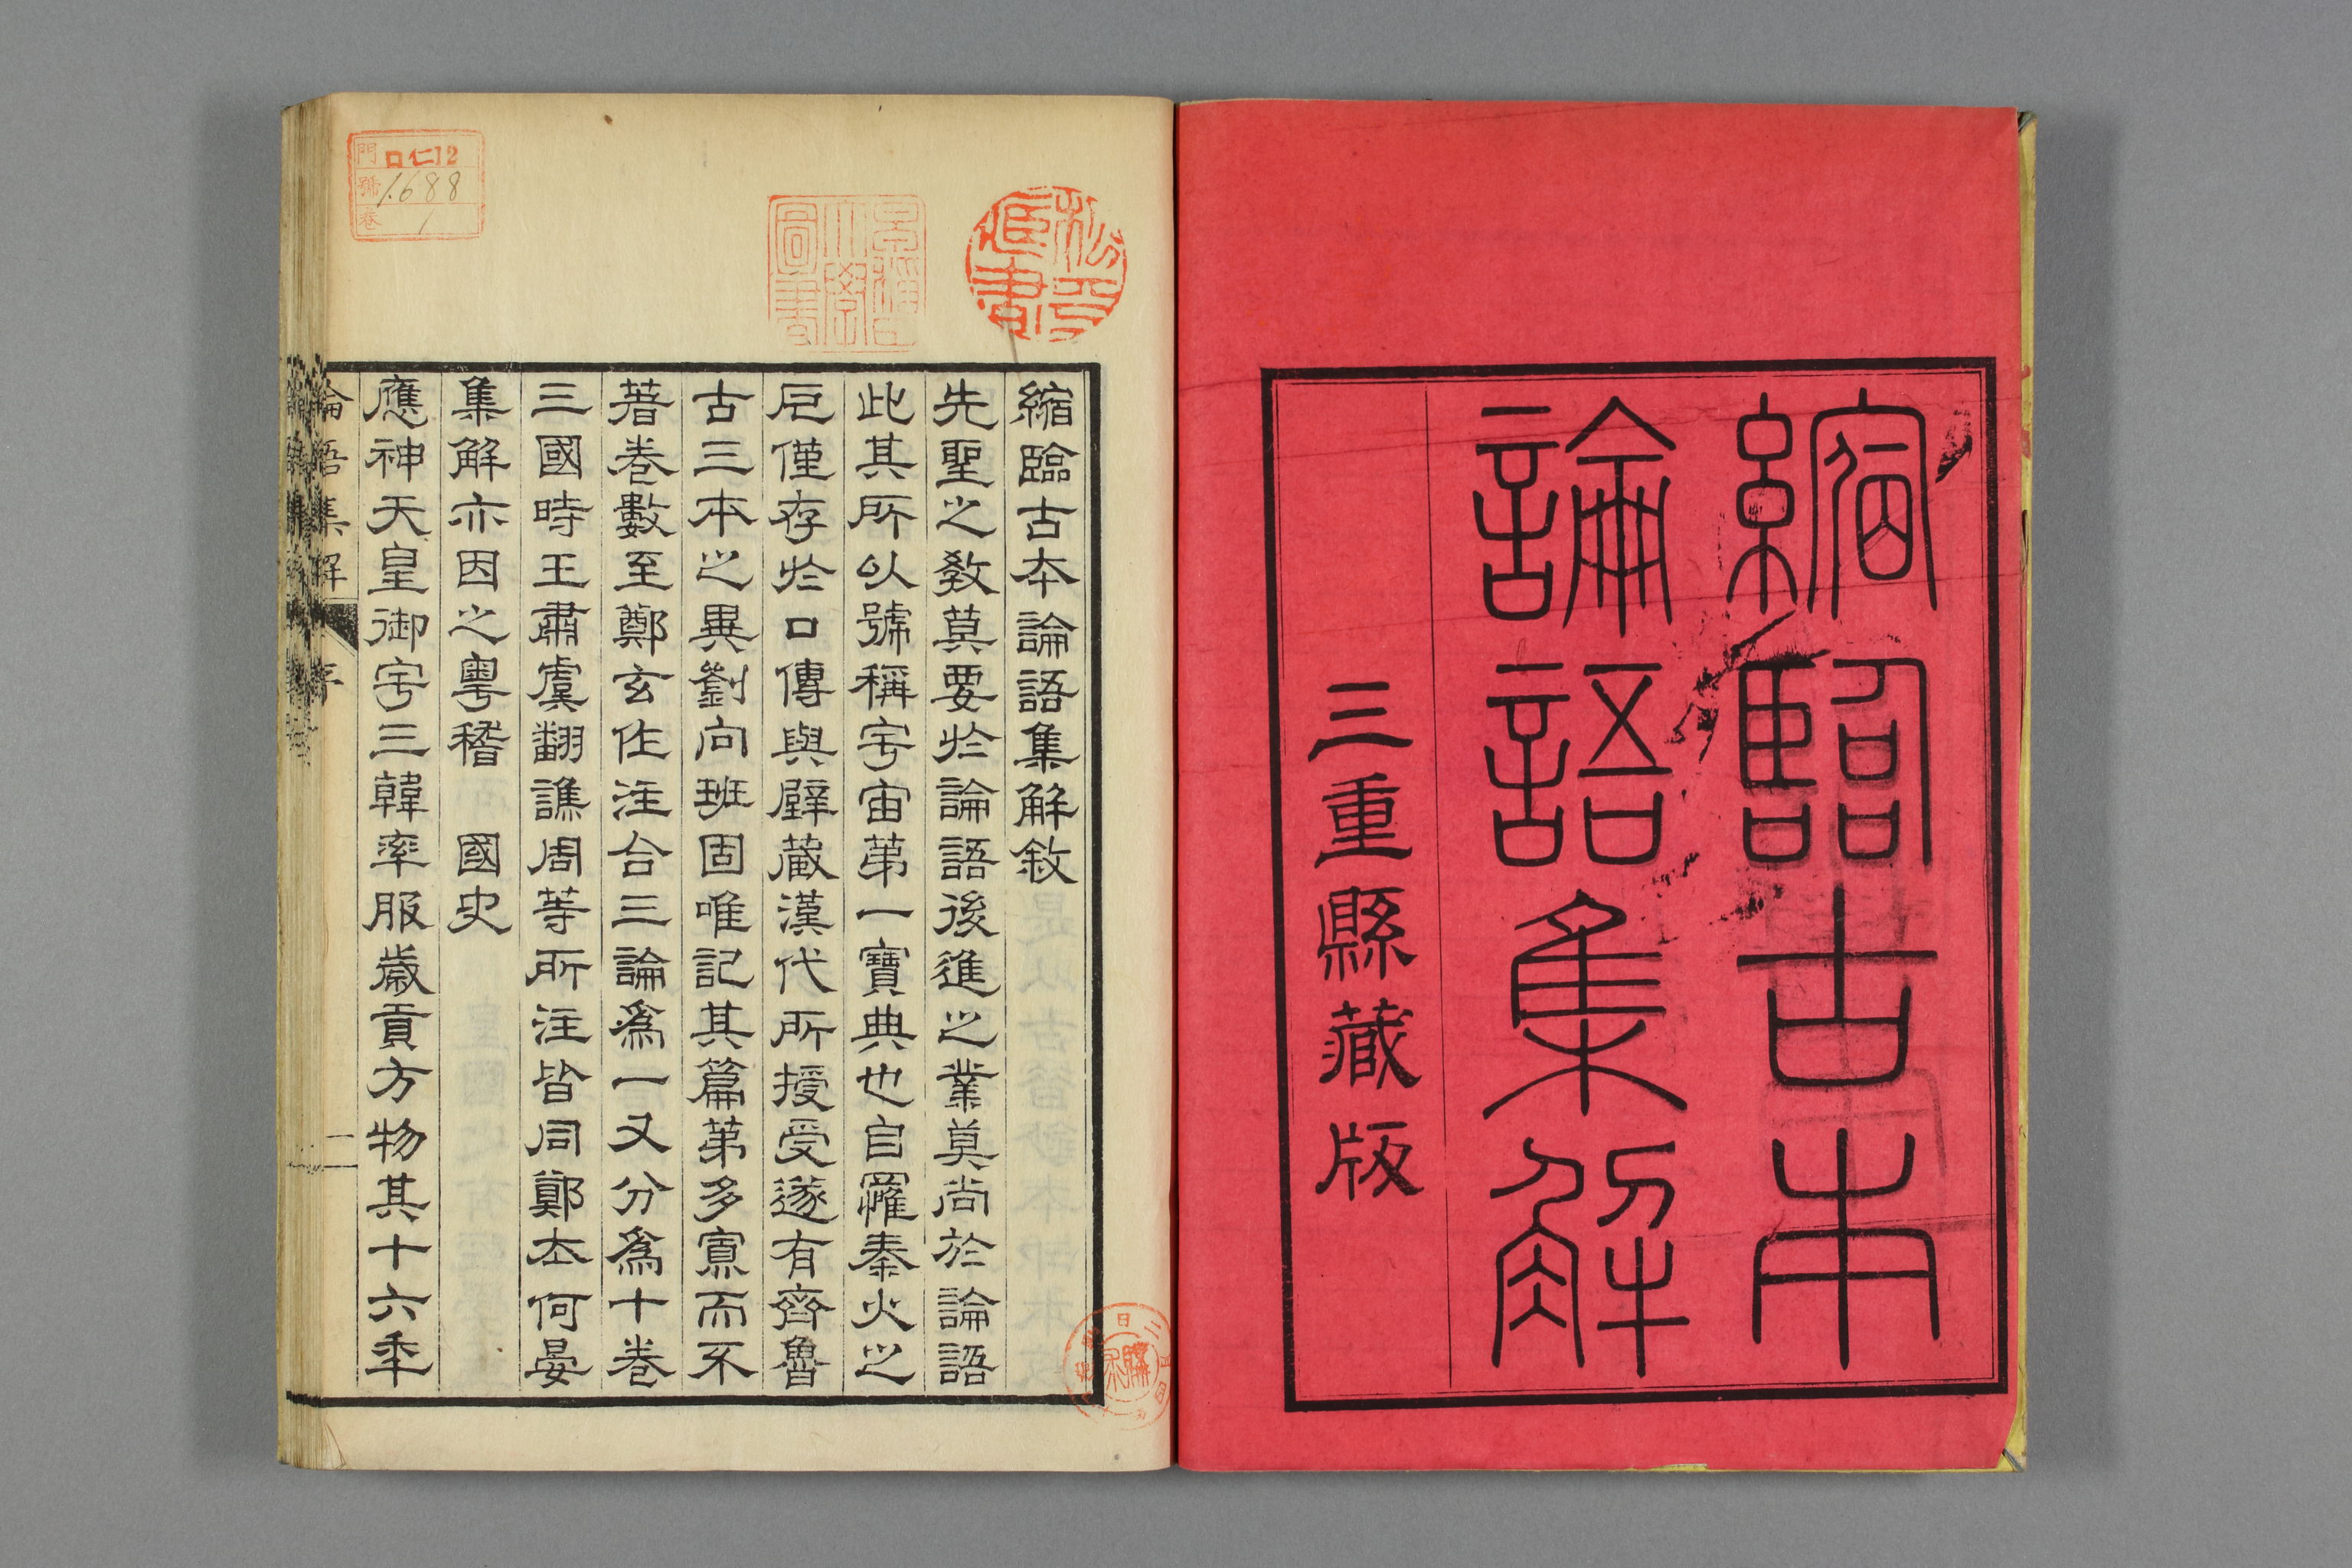 縮臨古本
論語集解
三重縣藏版
縮臨古本論語集解敘
先聖之教莫要於論語後進之業莫尚於論語
此其所以號稱宇宙第一寶典也自罹秦火之
厄僅存於口傳與壁藏漢代所授受遂有齊魯
古三本之異劉向班固唯記其篇第多寡而不
著卷數至鄭玄作注合三論爲一又分爲十卷
三國時王肅虞翻譙周等所注皆同鄭本何晏
集解亦因之粵稽 國史
應神天皇御宇三韓率服歲貢方物其十六年
論語集解
序
一
門 口仁12
號 1688
卷 1